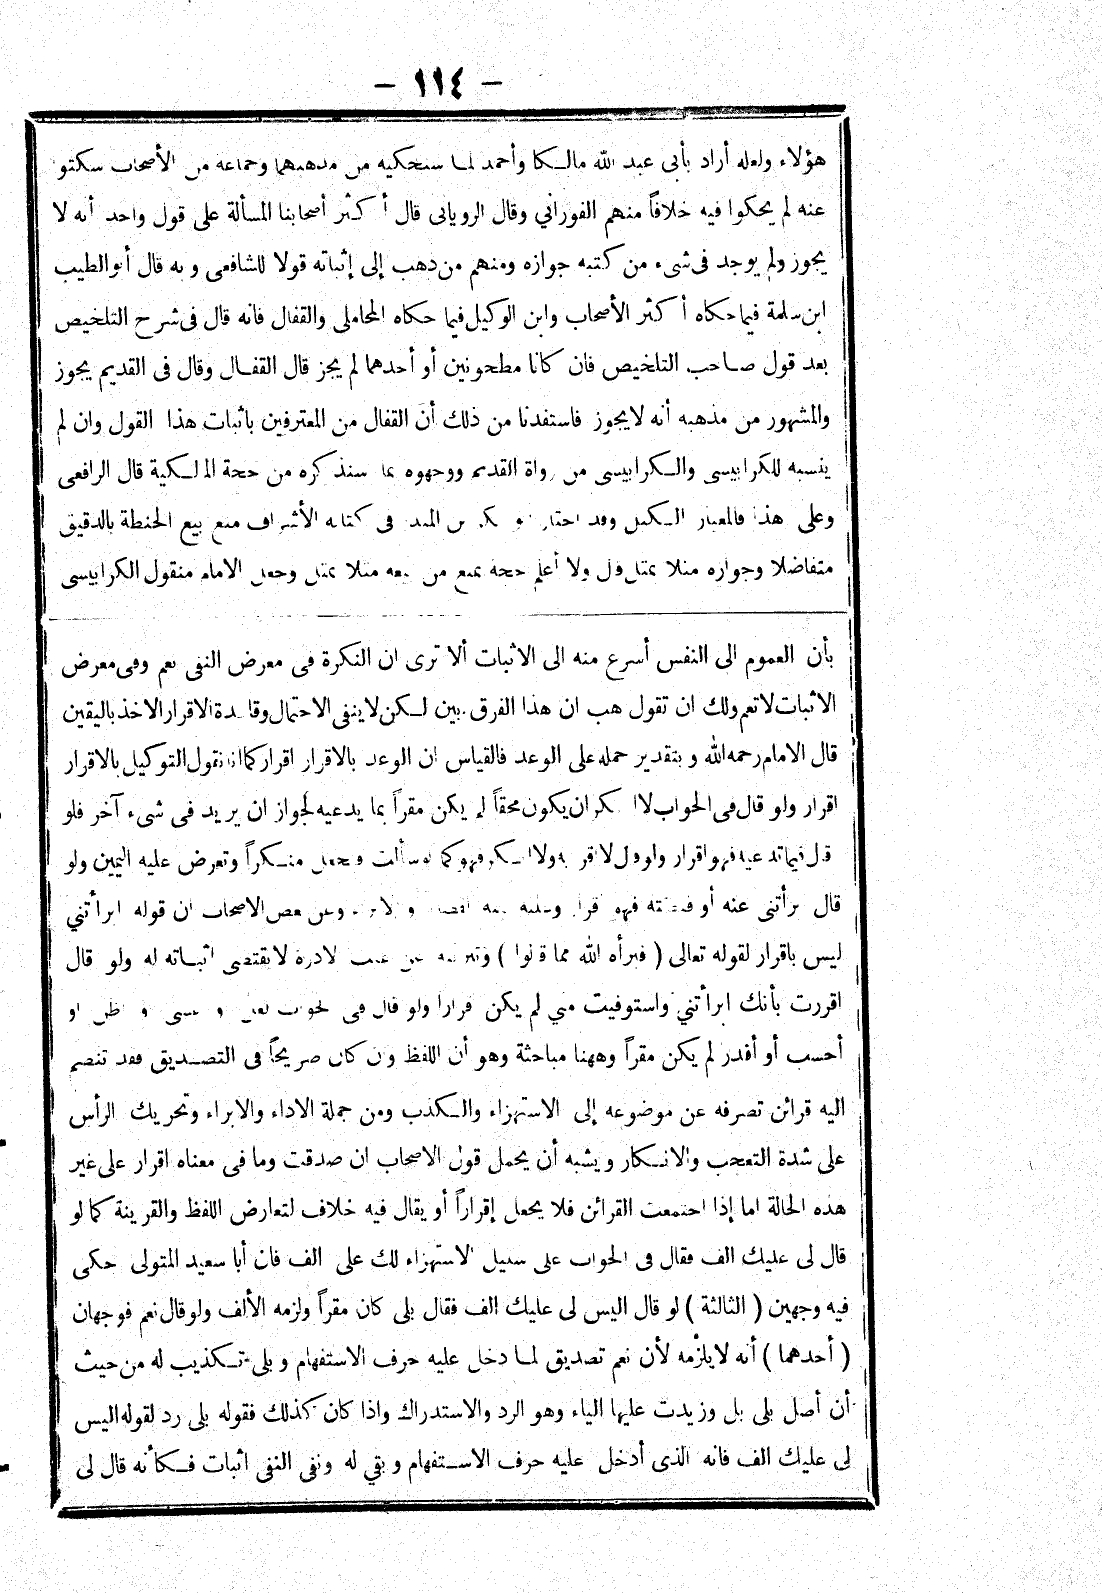 - ١١٤ -
هؤلاء ولعله أراد بأبى عبد الله مالكا وأحمد لما سنحكيه من مذهبهما وجماعة من الأصحاب سكتوا
عنه لم يحكوا فيه خلافاً منهم الفوراني وقال الرويانى قال أكثر أصحابنا المسألة على قول واحد أنه لا
يجوز ولم يوجد فى شىء من كتبه جوازه ومنهم من ذهب إلى إثباته قولا للشافعى وبه قال أبو الطيب
ابن سلمة فيما حكاه أكثر الأصحاب وابن الوكيل فيما حكاه المحاملى والقفال فانه قال فى شرح التلخيص
بعد قول صاحب التلخيص فان كانا مطحونين أو أحدهما لم يجز قال القفال وقال فى القديم يجوز
والمشهور من مذهبه أنه لا يجوز فاستفدنا من ذلك أن القفال من المعترفين باثبات هذا القول وان لم
ينسبه للكرابيسى والكرابيسى من رواة القديم ووجهوه بما سنذكره من حجة المالكية قال الرافعى
وعلى هذا فالمعيار الكيل وقد اختار فى كتابه الأشراف منع بيع الحنطة بالدقيق
متفاضلا وجوازه مثلا بمثل قال ولا أعلم حجة تمنع من بيعه مثلا بمثل وجعل الامام منقول الكرابيسى
بأن العموم الى النفس أسرع منه الى الاثبات ألا ترى ان النكرة فى معرض النفى تعم وفى معرض
الاثبات لا تعم ولك ان تقول هب ان هذا الفرق بين لكن لا ينفى الاحتمال وقاعدة الاقرار الاخذ باليقين
قال الامام رحمه الله وبتقدير حمله على الوعد فالقياس ان الوعد بالاقرار اقرار كما انا نقول التوكيل بالاقرار
اقرار ولو قال فى الجواب لا انكر ان يكون محقاً لم يكن مقراً بما يدعيه لجواز ان يريد فى شىء آخر فلو
قال فيما تدعيه فهو اقرار ولو قال لا اقر به ولا انكر فهو كما لو سكت فيجعل منكراً وتعرض عليه اليمين ولو
قال أبرأتنى عنه أو قضيته فهو اقرار وعليه بينة القضاء والابراء وعن بعض الاصحاب ان قوله ابرأتني
ليس باقرار لقوله تعالى ( فبرأه الله مما قالوا ) وتبرئته عن عيب الادرة لا يقتضى اثباته له ولو قال
اقررت بأنك ابرأتني واستوفيت مني لم يكن اقرارا ولو قال فى الجواب لعل وعسى أو اظن أو
أحسب أو أقدر لم يكن مقراً وههنا مباحثة وهو أن اللفظ وان كان صريحاً فى التصديق فقد تنضم
اليه قرائن تصرفه عن موضوعه إلى الاستهزاء والكذب ومن جملة الاداء والابراء وتحريك الرأس
على شدة التعجب والانكار ويشبه أن يحمل قول الاصحاب ان صدقت وما فى معناه اقرار على غير
هذه الحالة اما إذا اجتمعت القرائن فلا يجعل إقراراً أو يقال فيه خلاف لتعارض اللفظ والقرينة كما لو
قال لى عليك الف فقال فى الجواب على سبيل الاستهزاء لك على الف فان أبا سعيد المتولى حكى
فيه وجهين ( الثالثة ) لو قال اليس لى عليك الف فقال بلى كان مقراً ولزمه الألف ولو قال نعم فوجهان
( أحدهما ) أنه لا يلزمه لأن نعم تصديق لما دخل عليه حرف الاستفهام وبلى تكذيب له من حيث
أن أصل بلى بل وزيدت عليها الياء وهو الرد والاستدراك واذا كان كذلك فقوله بلى رد لقوله اليس
لى عليك الف فانه الذى أدخل عليه حرف الاستفهام وبقي له ونفى النفى اثبات فكأنه قال لى